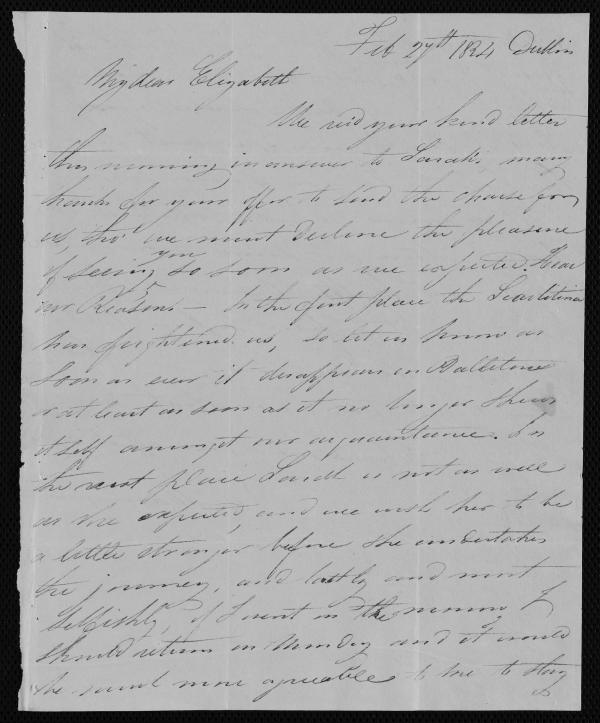 Feb 27th 1824 Dublin
My dear Elizabeth
We recd your kind letter
this morning in answer to Sarah's, many
thanks for your offer to send the chaise for
us, tho' we must Decline the pleasure
of seeing you so soon as we expected. Hear
our Reasons — In the first place the Scarlatina
has frightened us, so let us know as
soon as ever it disappears in Ballitore
or at least as soon as it no longer shews
itself amongst our acquaintance. In
the next place Sarah is not as well
as she expected, and we wish her to be
a little stronger before she undertakes
the journey, and lastly and most
Selfishly, if I went in the I
should return on Monday and it would
be much more agreeable to me to stay